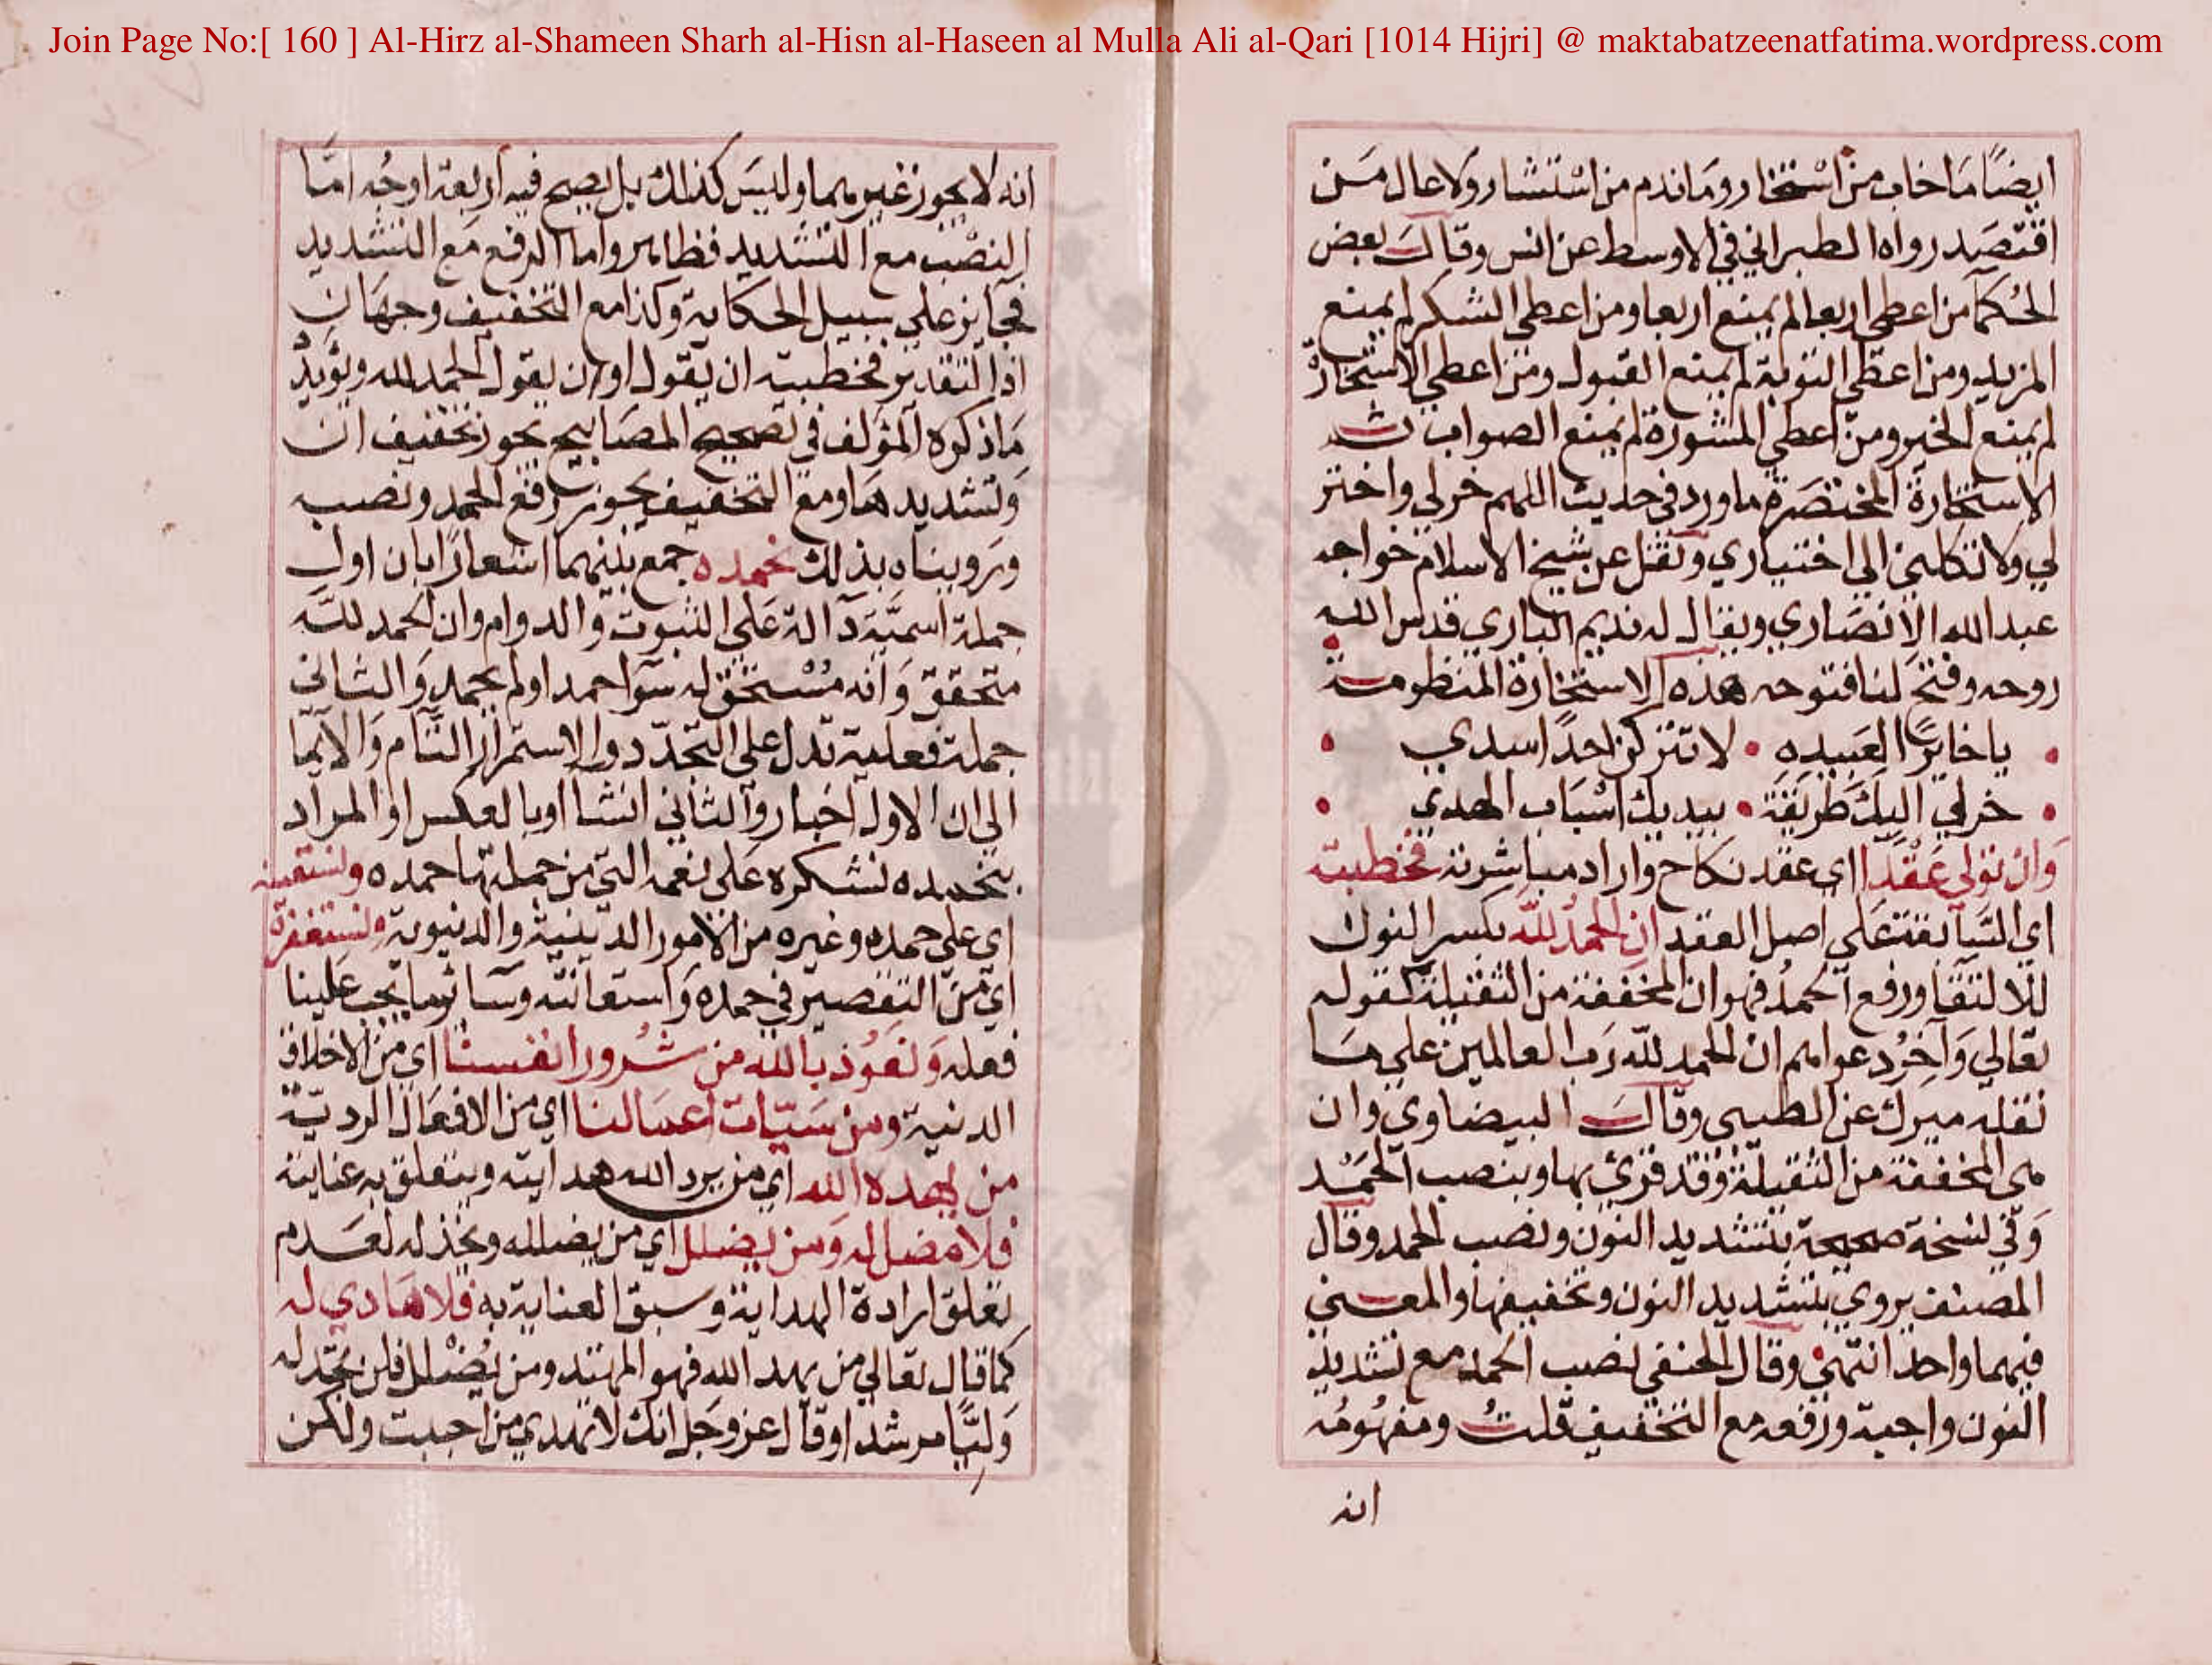 Join Page No:[ 160 ] Al-Hirz al-Shameen Sharh al-Hisn al-Haseen al Mulla Ali al-Qari [1014 Hijri] @ maktabatzeenatfatima.wordpress.com
ايضًا مَا خاب من اسْتخار ومَا ندم من اسْتشار ولا عال مَن
اقتصَد رواه الطبراني في الاوسط عن انس وقال بعض
الحُكمآ من اعطي اربعا لم يمنع اربعا ومن اعطي الشكر لم يمنع
المزيد ومن اعطي التوبة لم يمنع القبول ومن اعطي الاستخارة
لم يمنع الخير ومن اعطي المشورة لم يمنع الصواب ثم
الاستخارة المختصَرة ما ورد في حديث اللهم خر لي واختر
لي ولا تكلني الي اختياري ونقل عن شيخ الاسلام خواجه
عبد الله الانصَاري ويقال له نديم الباري قدس الله
روحه وفتح لنا فتوحه هذه الاستخارة المنظومة
يا خايرًا لعَبيده • لا تتركن احدًا سدي
خر لي اليك طريقة • بيديك اسْبَاب الهدي
وَان تولي عَقْدًا اي عقد نكاح واراد مباشرته فخطبته
اي السَّابقة علي اصل العقد ان الحمدُ للّه بكسر النون
للالتقا ورفع الحمدُ فهو ان المخففة من الثقيلة كقوله
تعالي وَآخِرُ دعواهم ان الحمد للّه رَب العالمين علي مَا
نقله ميرك عن الطيبي وقال البيضاوي وان
هي المخففة من الثقيلة وَقد قرئ بها وبنصب الحَمْد
وَفي نسخة صحيحة بتشديد النون ونصب الحمد وقال
المصنف يروي بتشديد النون وتخفيفها والمعني
فيهما واحد انتهي وقال الحنفي نصب الحمد مع تشديد
النون واجبة ورفعه مع التخفيف قلتُ ومفهُومُه
انه
انه لا يجوز غيرهما وليسَ كذلك بل يصح فيه اربعة اوجُه امّا
النصْب مع التشديد فظاهر واما الرفع مَع التشديد
فجايز علي سبيل الحكاية وكذا مع التخفيف وجهَان
اذ التقدير فخطبته ان يقول او ان يقول الحمد لله ويؤيدُ
مَا ذكره المؤلف في تصحيح المصَابيح يجوز تخفيف ان
وَتشديدهَا ومع التخفيف يجوز رفع الحمد ونصبه
ورَويناه بذلك نحمده جمع بينهما اشعارًا بان اول
جملة اسميَّة دالة عَلي الثبوت والدوام وان الحمد للّه
متحقق وَانه مُسْتحق له سَوآ حمد او لم يحمد وَالثاني
جملة فعلية تدل علي التجدّد والاستمرار التَّام وَالايمَا
الي ان الاول اخبار والثاني انشآ او بالعكس او المراد
بنحمده نشكره عَلي نعمه التي من جملتها حمده ونستعينه
اي علي حمده وغيره من الامور الدينية والدنيوية ونستغفره
اي من التقصير في حمده وَاستعانته وسَائر ما يجب عَلينا
فعله وَنعُوذ بالله من شُرور انفسنا اي من الاخلاق
الدنية ومن سَيّات اعمَالنا اي من الافعَال الرديّة
من يهده الله اي من يرد الله هدايته ويتعلق به عنايته
فلا مُضل له وَمن يضلل اي من يضلله ويخذله لعَدم
تعلق ارادة الهداية وسبق العناية به فلا هَادي له
كما قال تعالي من يهد الله فهو المهتد ومن يُضْلل فلن تجد له
وَليًّا مرشدا وقال عز وجَل انك لا تهدي من احببت ولكن